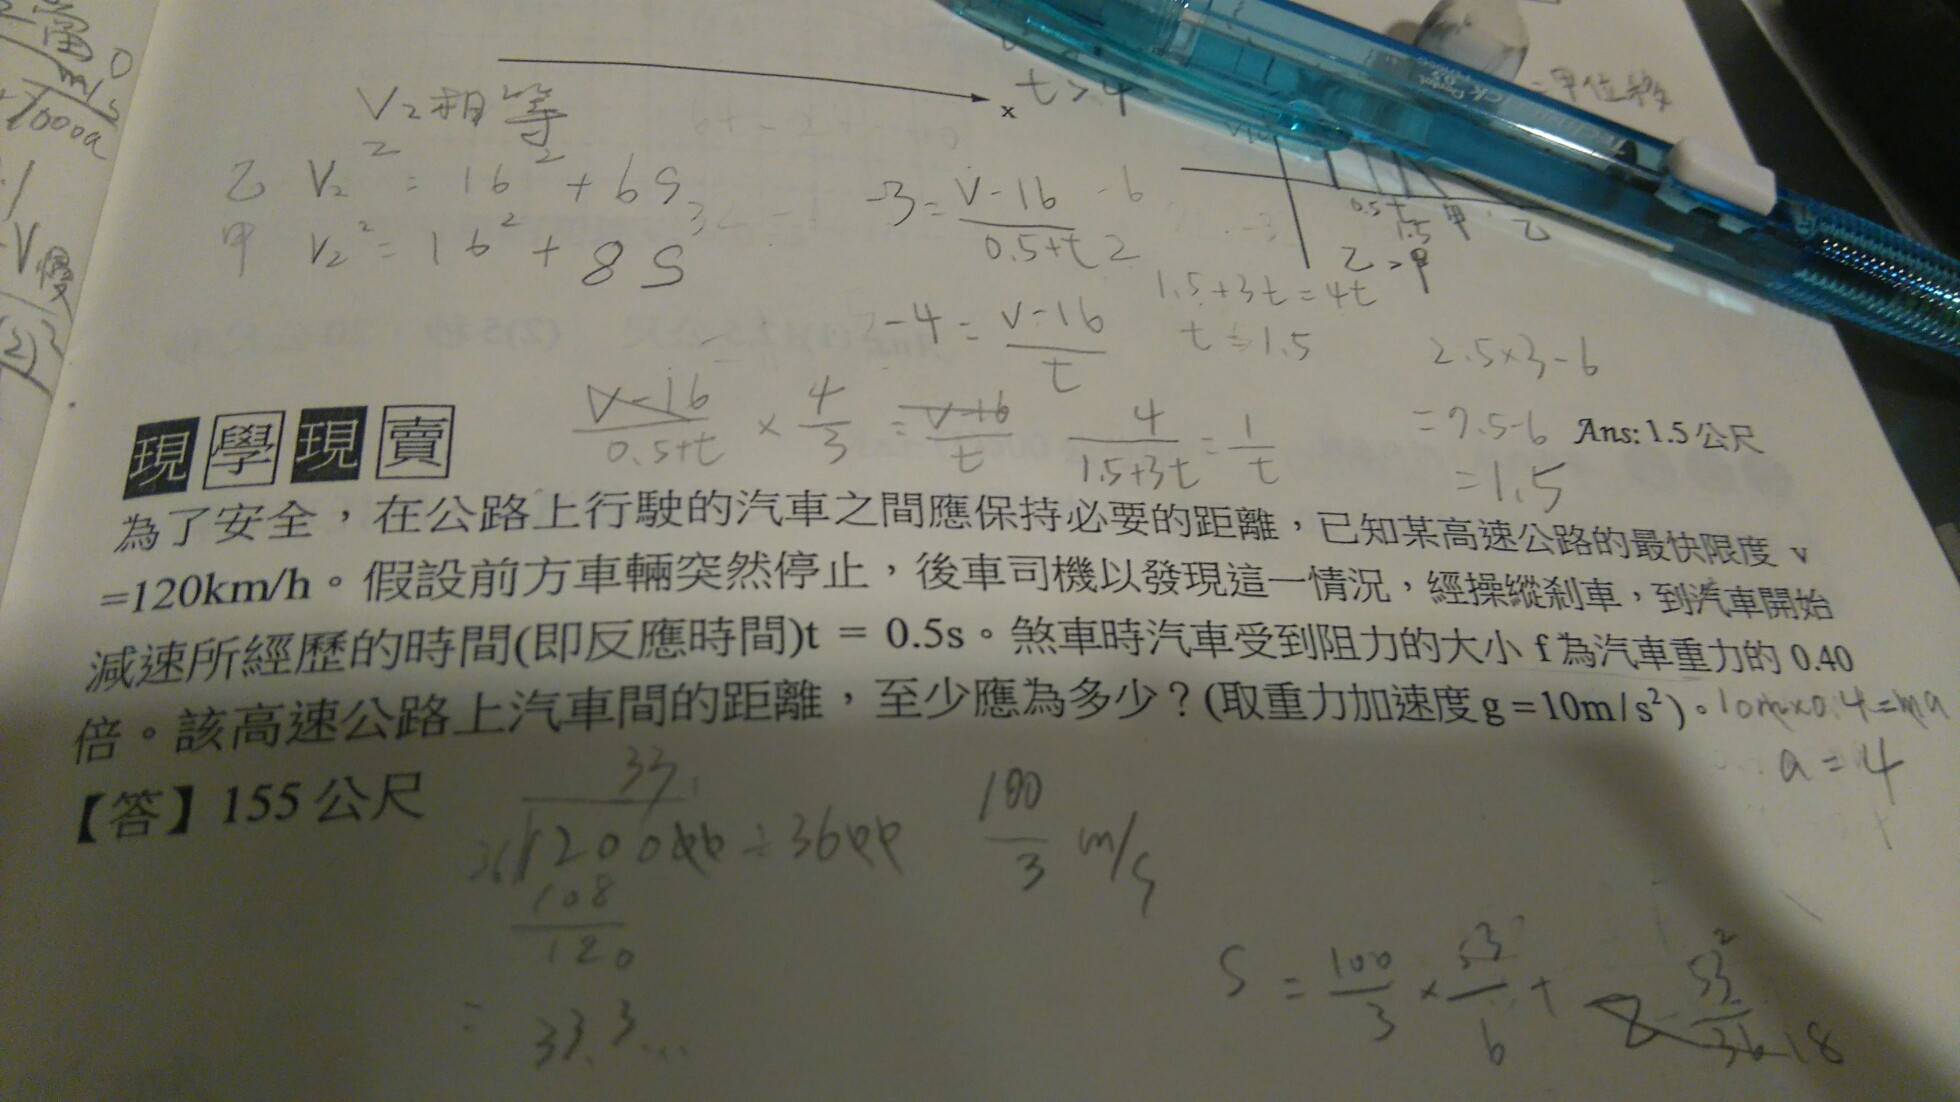 x t>4
V₂相等
乙 V₂² = 16² + 6S
甲 V₂² = 16² + 8S
-3 = V-16 / 0.5+t
-4 = V-16 / t
1.5+3t=4t
t=1.5
乙>甲
0.5 1.5 甲 乙
V-16 / 0.5+t × 4/3 = V-16 / t
4 / 1.5+3t = 1 / t
2.5×3-6
=7.5-6
=1.5
Ans: 1.5 公尺
現學現賣
為了安全，在公路上行駛的汽車之間應保持必要的距離，已知某高速公路的最快限度 v
=120km/h。假設前方車輛突然停止，後車司機以發現這一情況，經操縱剎車，到汽車開始
減速所經歷的時間(即反應時間)t = 0.5s。煞車時汽車受到阻力的大小 f 為汽車重力的 0.40
倍。該高速公路上汽車間的距離，至少應為多少？(取重力加速度 g =10m/s²)。
10m×0.4=ma
a=4
【答】155 公尺
33
36 120000÷3600
108
120
= 33.3...
100/3 m/s
S = 100/3 × 53/6 +